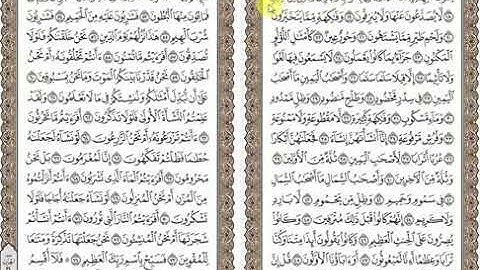 لَّا يُصَدَّعُونَ عَنْهَا وَلَا يُنزِفُونَ ١٩ وَفَٰكِهَةٍ مِّمَّا يَتَخَيَّرُونَ
٢٠ وَلَحْمِ طَيْرٍ مِّمَّا يَشْتَهُونَ ٢١ وَحُورٌ عِينٌ ٢٢ كَأَمْثَٰلِ ٱللُّؤْلُؤِ
ٱلْمَكْنُونِ ٢٣ جَزَآءًۢ بِمَا كَانُوا۟ يَعْمَلُونَ ٢٤ لَا يَسْمَعُونَ فِيهَا لَغْوًا
وَلَا تَأْثِيمًا ٢٥ إِلَّا قِيلًا سَلَٰمًا سَلَٰمًا ٢٦ وَأَصْحَٰبُ ٱلْيَمِينِ مَآ أَصْحَٰبُ
ٱلْيَمِينِ ٢٧ فِى سِدْرٍ مَّخْضُودٍ ٢٨ وَطَلْحٍ مَّنضُودٍ ٢٩ وَظِلٍّ مَّمْدُودٍ
٣٠ وَمَآءٍ مَّسْكُوبٍ ٣١ وَفَٰكِهَةٍ كَثِيرَةٍ ٣٢ لَّا مَقْطُوعَةٍ وَلَا مَمْنُوعَةٍ
٣٣ وَفُرُشٍ مَّرْفُوعَةٍ ٣٤ إِنَّآ أَنشَأْنَٰهُنَّ إِنشَآءً ٣٥ فَجَعَلْنَٰهُنَّ أَبْكَارًا
٣٦ عُرُبًا أَتْرَابًا ٣٧ لِّأَصْحَٰبِ ٱلْيَمِينِ ٣٨ ثُلَّةٌ مِّنَ ٱلْأَوَّلِينَ
٣٩ وَثُلَّةٌ مِّنَ ٱلْءَاخِرِينَ ٤٠ وَأَصْحَٰبُ ٱلشِّمَالِ مَآ أَصْحَٰبُ ٱلشِّمَالِ
٤١ فِى سَمُومٍ وَحَمِيمٍ ٤٢ وَظِلٍّ مِّن يَحْمُومٍ ٤٣ لَّا بَارِدٍ
وَلَا كَرِيمٍ ٤٤ إِنَّهُمْ كَانُوا۟ قَبْلَ ذَٰلِكَ مُتْرَفِينَ ٤٥ وَكَانُوا۟
يُصِرُّونَ عَلَى ٱلْحِنثِ ٱلْعَظِيمِ ٤٦ وَكَانُوا۟ يَقُولُونَ أَئِذَا مِتْنَا وَكُنَّا
تُرَابًا وَعِظَٰمًا أَءِنَّا لَمَبْعُوثُونَ ٤٧ أَوَءَابَآؤُنَا ٱلْأَوَّلُونَ
فَمَالِـُٔونَ مِنْهَا ٱلْبُطُونَ ٥٣ فَشَٰرِبُونَ عَلَيْهِ مِنَ ٱلْحَمِيمِ ٥٤ فَشَٰرِبُونَ
شُرْبَ ٱلْهِيمِ ٥٥ هَٰذَا نُزُلُهُمْ يَوْمَ ٱلدِّينِ ٥٦ نَحْنُ خَلَقْنَٰكُمْ فَلَوْلَا
تُصَدِّقُونَ ٥٧ أَفَرَءَيْتُم مَّا تُمْنُونَ ٥٨ ءَأَنتُمْ تَخْلُقُونَهُۥٓ أَمْ نَحْنُ
ٱلْخَٰلِقُونَ ٥٩ نَحْنُ قَدَّرْنَا بَيْنَكُمُ ٱلْمَوْتَ وَمَا نَحْنُ بِمَسْبُوقِينَ ٦٠
عَلَىٰٓ أَن نُّبَدِّلَ أَمْثَٰلَكُمْ وَنُنشِئَكُمْ فِى مَا لَا تَعْلَمُونَ ٦١ وَلَقَدْ
عَلِمْتُمُ ٱلنَّشْأَةَ ٱلْأُولَىٰ فَلَوْلَا تَذَكَّرُونَ ٦٢ أَفَرَءَيْتُم مَّا تَحْرُثُونَ
٦٣ ءَأَنتُمْ تَزْرَعُونَهُۥٓ أَمْ نَحْنُ ٱلزَّٰرِعُونَ ٦٤ لَوْ نَشَآءُ لَجَعَلْنَٰهُ
حُطَٰمًا فَظَلْتُمْ تَفَكَّهُونَ ٦٥ إِنَّا لَمُغْرَمُونَ ٦٦ بَلْ نَحْنُ
مَحْرُومُونَ ٦٧ أَفَرَءَيْتُمُ ٱلْمَآءَ ٱلَّذِى تَشْرَبُونَ ٦٨ ءَأَنتُمْ أَنزَلْتُمُوهُ
مِنَ ٱلْمُزْنِ أَمْ نَحْنُ ٱلْمُنزِلُونَ ٦٩ لَوْ نَشَآءُ جَعَلْنَٰهُ أُجَاجًا فَلَوْلَا
تَشْكُرُونَ ٧٠ أَفَرَءَيْتُمُ ٱلنَّارَ ٱلَّتِى تُورُونَ ٧١ ءَأَنتُمْ أَنشَأْتُمْ
شَجَرَتَهَآ أَمْ نَحْنُ ٱلْمُنشِـُٔونَ ٧٢ نَحْنُ جَعَلْنَٰهَا تَذْكِرَةً وَمَتَٰعًا
لِّلْمُقْوِينَ ٧٣ فَسَبِّحْ بِٱسْمِ رَبِّكَ ٱلْعَظِيمِ ٧٤ فَلَآ أُقْسِمُ